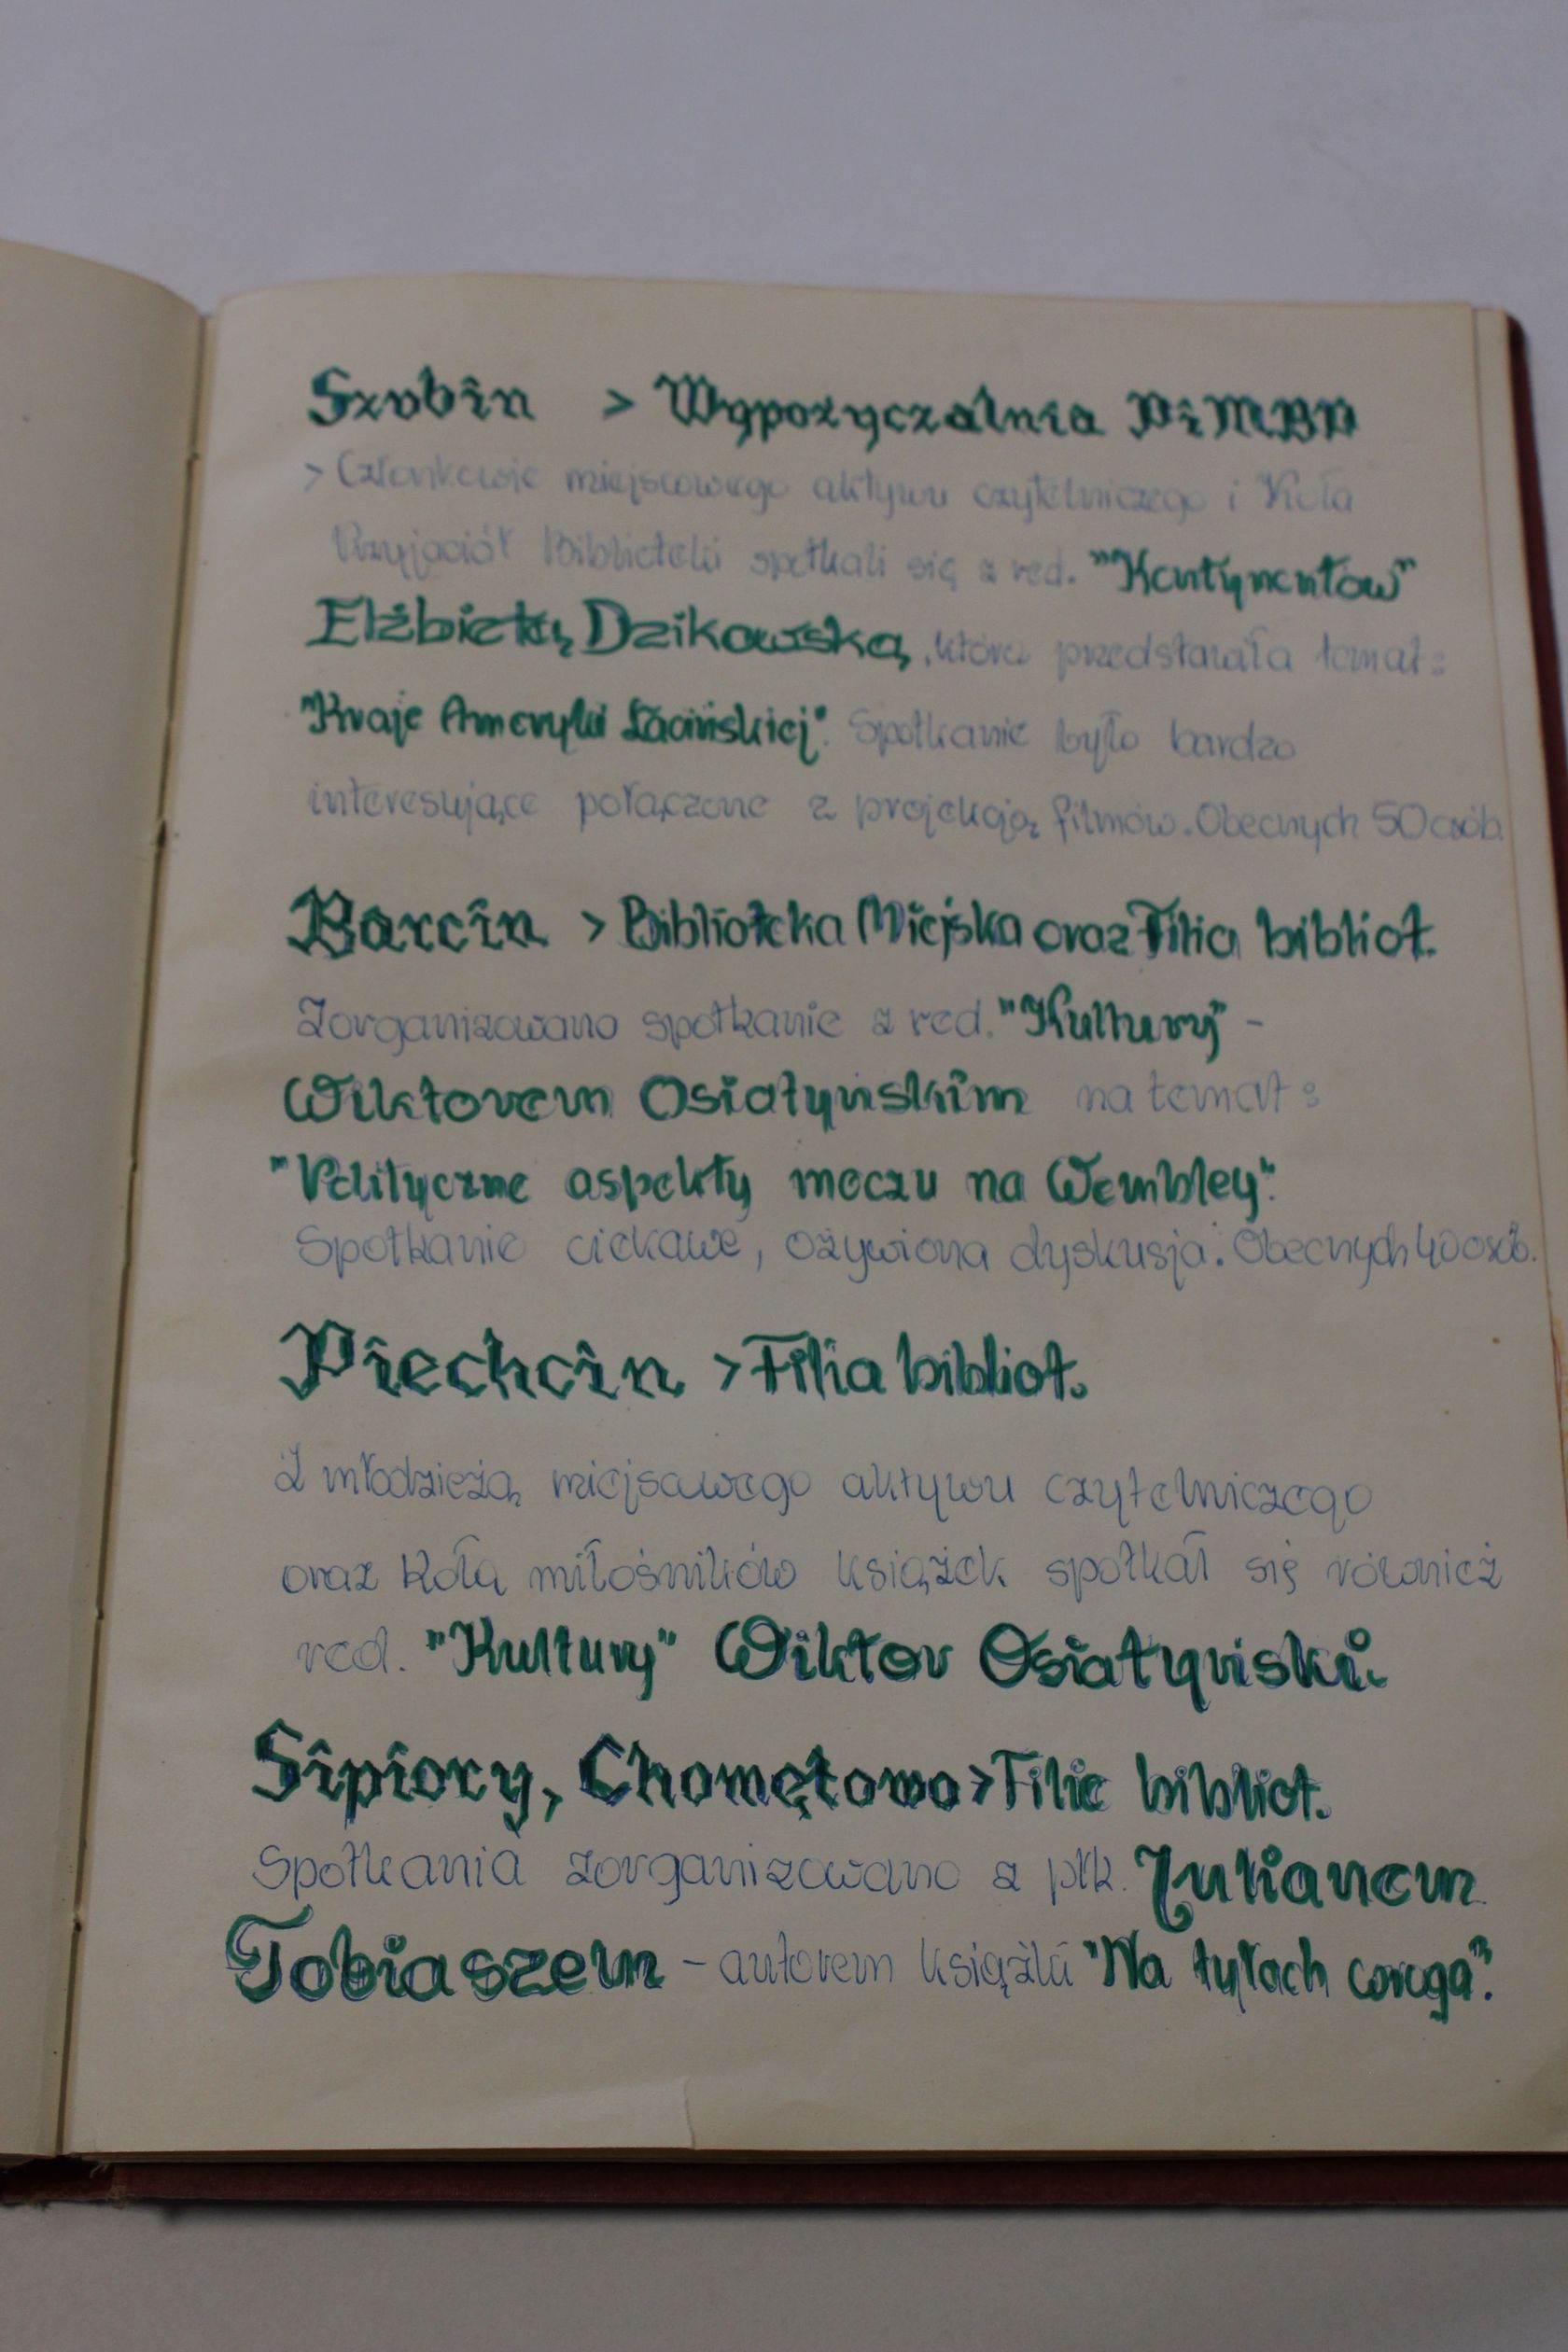 Szubin > Wypożyczalnia PiMBP
> Członkowie miejscowego aktywu czytelniczego i Koła
Przyjaciół Biblioteki spotkali się z red. "Kontynentów"
Elżbietą Dzikowską, która przedstawiła temat:
"Kraje Ameryki Łacińskiej". Spotkanie było bardzo
interesujące połączone z projekcją filmów. Obecnych 50 osób.
Barcin > Biblioteka Miejska oraz Filia bibliot.
Zorganizowano spotkanie z red. "Kultury" -
Wiktorem Osiatyńskim na temat:
"Polityczne aspekty meczu na Wembley".
Spotkanie ciekawe, ożywiona dyskusja. Obecnych 40 osób.
Piechcin > Filia bibliot.
Z młodzieżą miejscowego aktywu czytelniczego
oraz koła miłośników książek spotkał się również
red. "Kultury" Wiktor Osiatyński.
Sipiory, Chomętowo > Filie bibliot.
Spotkania zorganizowano z płk. Julianem
Tobiaszem - autorem książki "Na tyłach wroga".